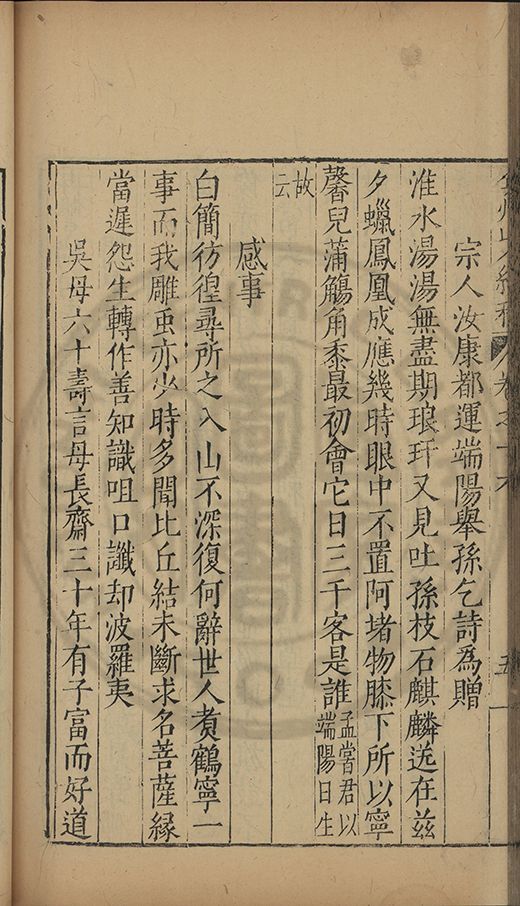 宗人汝康都運端陽舉孫乞詩為贈
淮水湯湯無盡期琅玕又見吐孫枝石麒麟送在兹
夕蠟鳳凰成應幾時眼中不置阿堵物膝下所以寧
馨兒蒲觴角黍最初會它日三千客是誰孟嘗君以
端陽日生
故
云
感事
白簡彷徨尋所之入山不深復何辭世人煑鶴寧一
事而我雕䖝亦少時多聞比丘結未斷求名菩薩緣
當遲怨生轉作善知識咀口讖却波羅夷
吳母六十壽言母長齋三十年有子富而好道